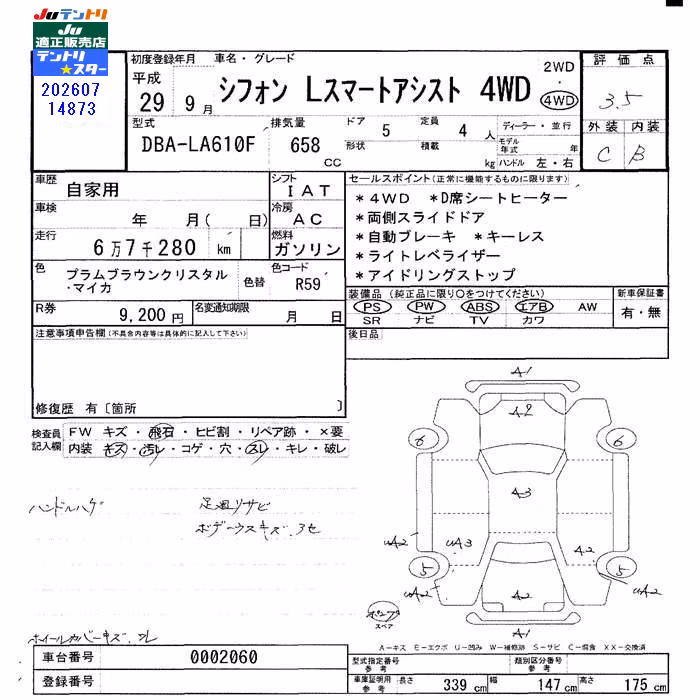 Juテントリ
Ju
適正販売店
テントリ
★スター
202607
14873
初度登録年月
車名・グレード
平成
29 9月
シフォン Lスマートアシスト 4WD
2WD
・
4WD
評価点
3.5
外装 内装
C B
型式
DBA-LA610F
排気量
658
CC
ドア 5
形状
定員 4 人
積載 kg
ディーラー・並行
モデル年式 年
ハンドル 左・右
車歴 自家用
シフト IAT
車検 年 月( 日)
冷房 AC
走行 6万7千280 km
燃料 ガソリン
色 プラムブラウンクリスタル
・マイカ
色替
色コード R59
R券 9,200円
名変通知期限 月 日
セールスポイント(正常に機能するものに限ります)
*4WD *D席シートヒーター
*両側スライドドア
*自動ブレーキ *キーレス
*ライトレベライザー
*アイドリングストップ
装備品(純正品に限り○をつけてください)
PS PW ABS エアB AW
SR ナビ TV カワ
新車保証書
有・無
注意事項申告欄(不具合内容等は具体的に記入して下さい)
後日品
修復歴 有〔箇所 〕
検査員
記入欄
FW キズ・飛石・ヒビ割・リペア跡・×要
内装 キズ・汚レ・コゲ・穴・スレ・キレ・破レ
ハンドルハゲ
足廻りサビ
ボデーウスキズ.3セ
ホイールカバーキズ.ワレ
A1
A2
6 6
A3
UA2
UA3
A2
5 5
UA2
A2
UA2
A1
スペア
A-キス E-エクボ U-凹み W-補修跡 S-サビ C-腐食 XX-交換済
車台番号 0002060
登録番号
型式指定番号
参考
類別区分番号
参考
車庫証明用
参考
長さ 339cm 幅 147cm 高さ 175cm